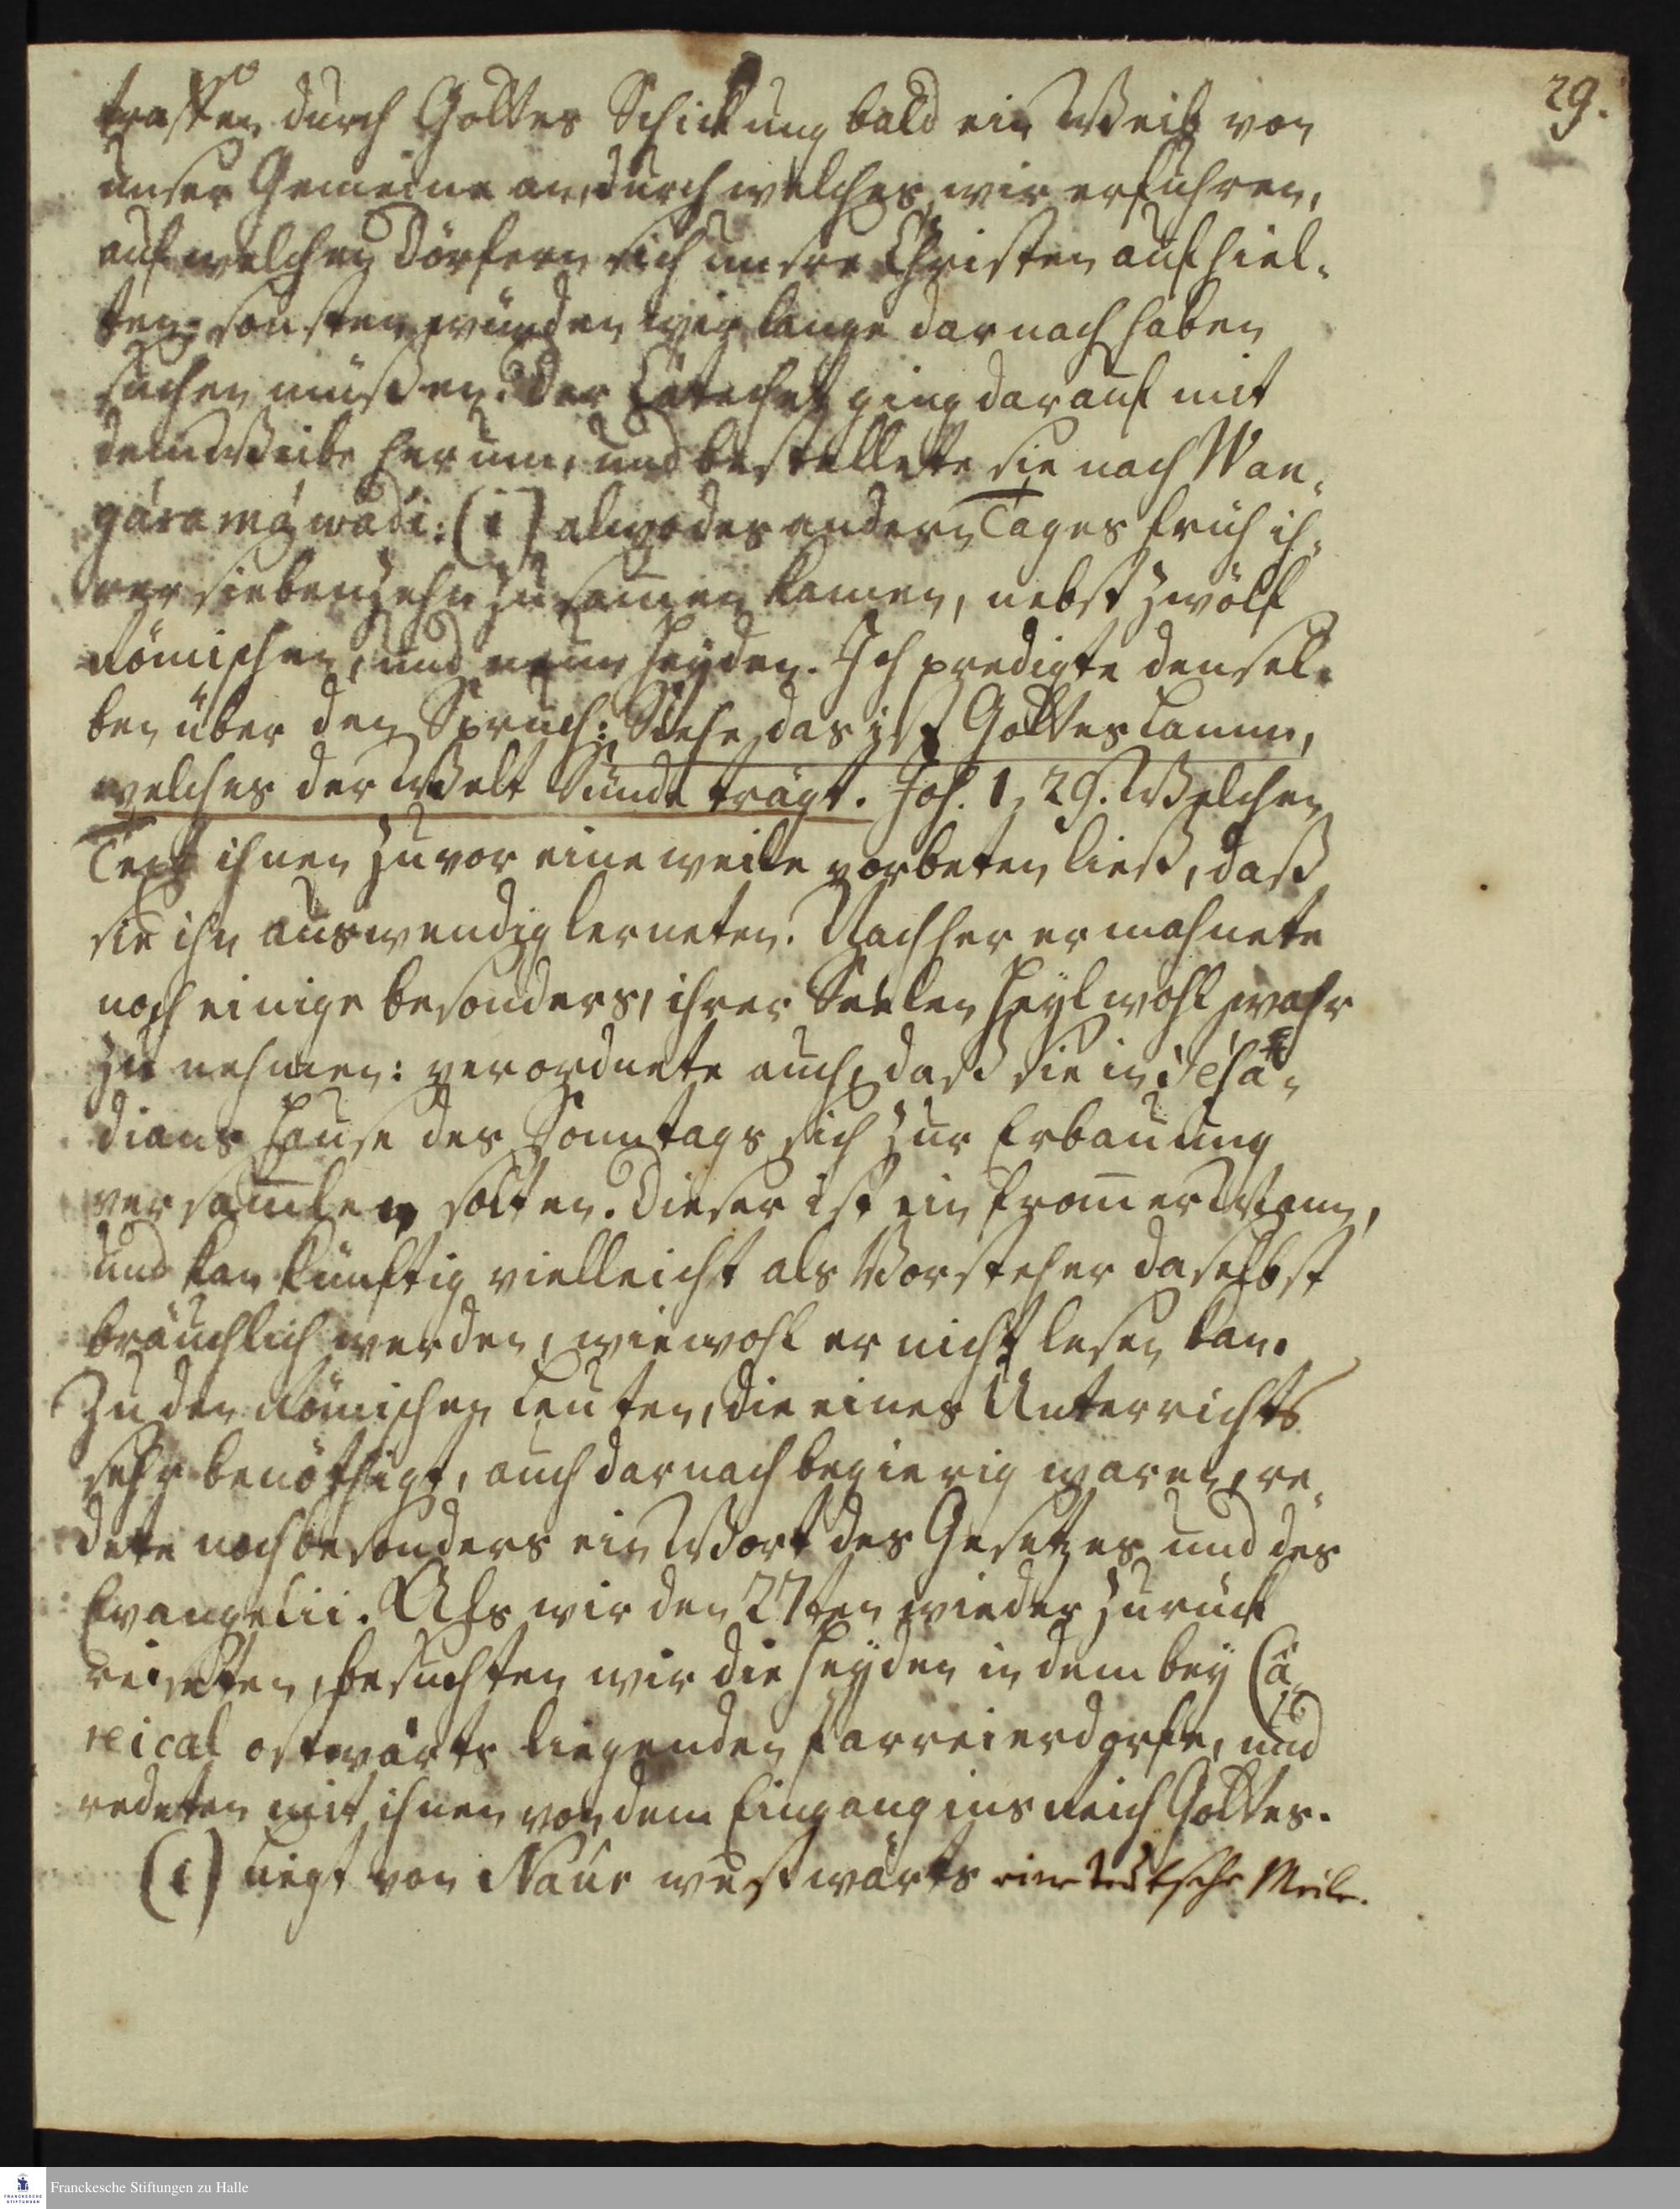 29.
traffen durch Gottes Schickung bald ein Weib von
unser Gemeine an, durch welches wir erfuhren,
auf welchen Dörfern sich unsere Christen aufhiel-
ten: sonsten würden wir lange darnach haben
suchen müßen. Der Catechet ging darauf mit
dem Weibe herum, und bestellete sie nach Wan-
gáramáwádi: (i) alwo des andern Tages früh ih-
rer siebenzehn zusam̄en kamen, nebst zwölf
Römischen, und neun Heyden. Ich predigte densel-
ben über den Spruch: Siehe das ist Gottes Lamm,
welches der Welt Sünde trägt. Joh. 1, 29. Welchen
Text ihnen zuvor eine weile vorbeten ließ, daß
sie ihn auswendig lerneten. Nachher ermahnete
noch einige besonders, ihrer Seelen Heyl wohl wahr
zu nehmen: verordnete auch, daß sie in
dians Hause des Sonntags sich zur Erbauung
versam̄len solten. Dieser ist ein from̄er Mann,
und kan künftig vielleicht als Vorsteher daselbst
bräuchlich werden, wiewohl er nicht lesen kan.
Zu den Römischen Leuten, die eines Unterrichts
sehr benöthigt, auch darnach begierig waren, re-
dete noch besonders ein Wort des Gesetzes und des
Evangelii. Als wir den 27ten wieder zurück
reiseten, besuchten wir die Heyden in dem bey Cá-
reical ostwärts liegenden Parreierdorfe, und
redeten mit ihnen von dem Eingang ins Reich Gottes.
(i) liegt von Naúr westwärts eine teutsche Meile.
Franckesche Stiftungen zu Halle
FRANCKESCHE STIFTUNGEN